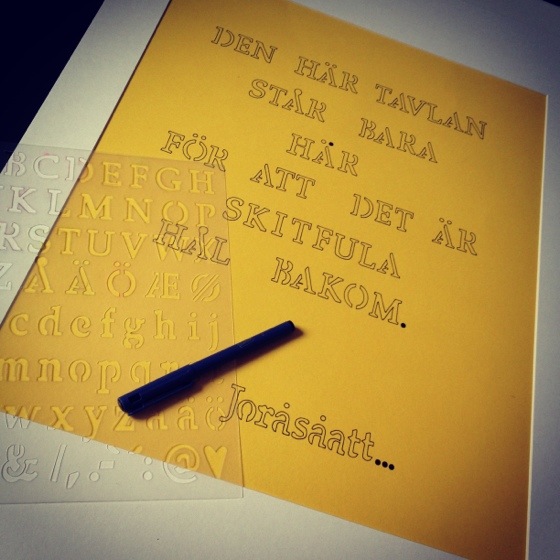 DEN HÄR TAVLAN
STÅR BARA
HÄR
FÖR ATT DET ÄR
SKITFULA
HÅL BAKOM.
Joråsåatt...
BCDEFGH
KLMNOP
RSTUVWX
ZÅÄÖÆØ
cdefghij
mnopqr
wxyzåäö
&/,.-´:@♥